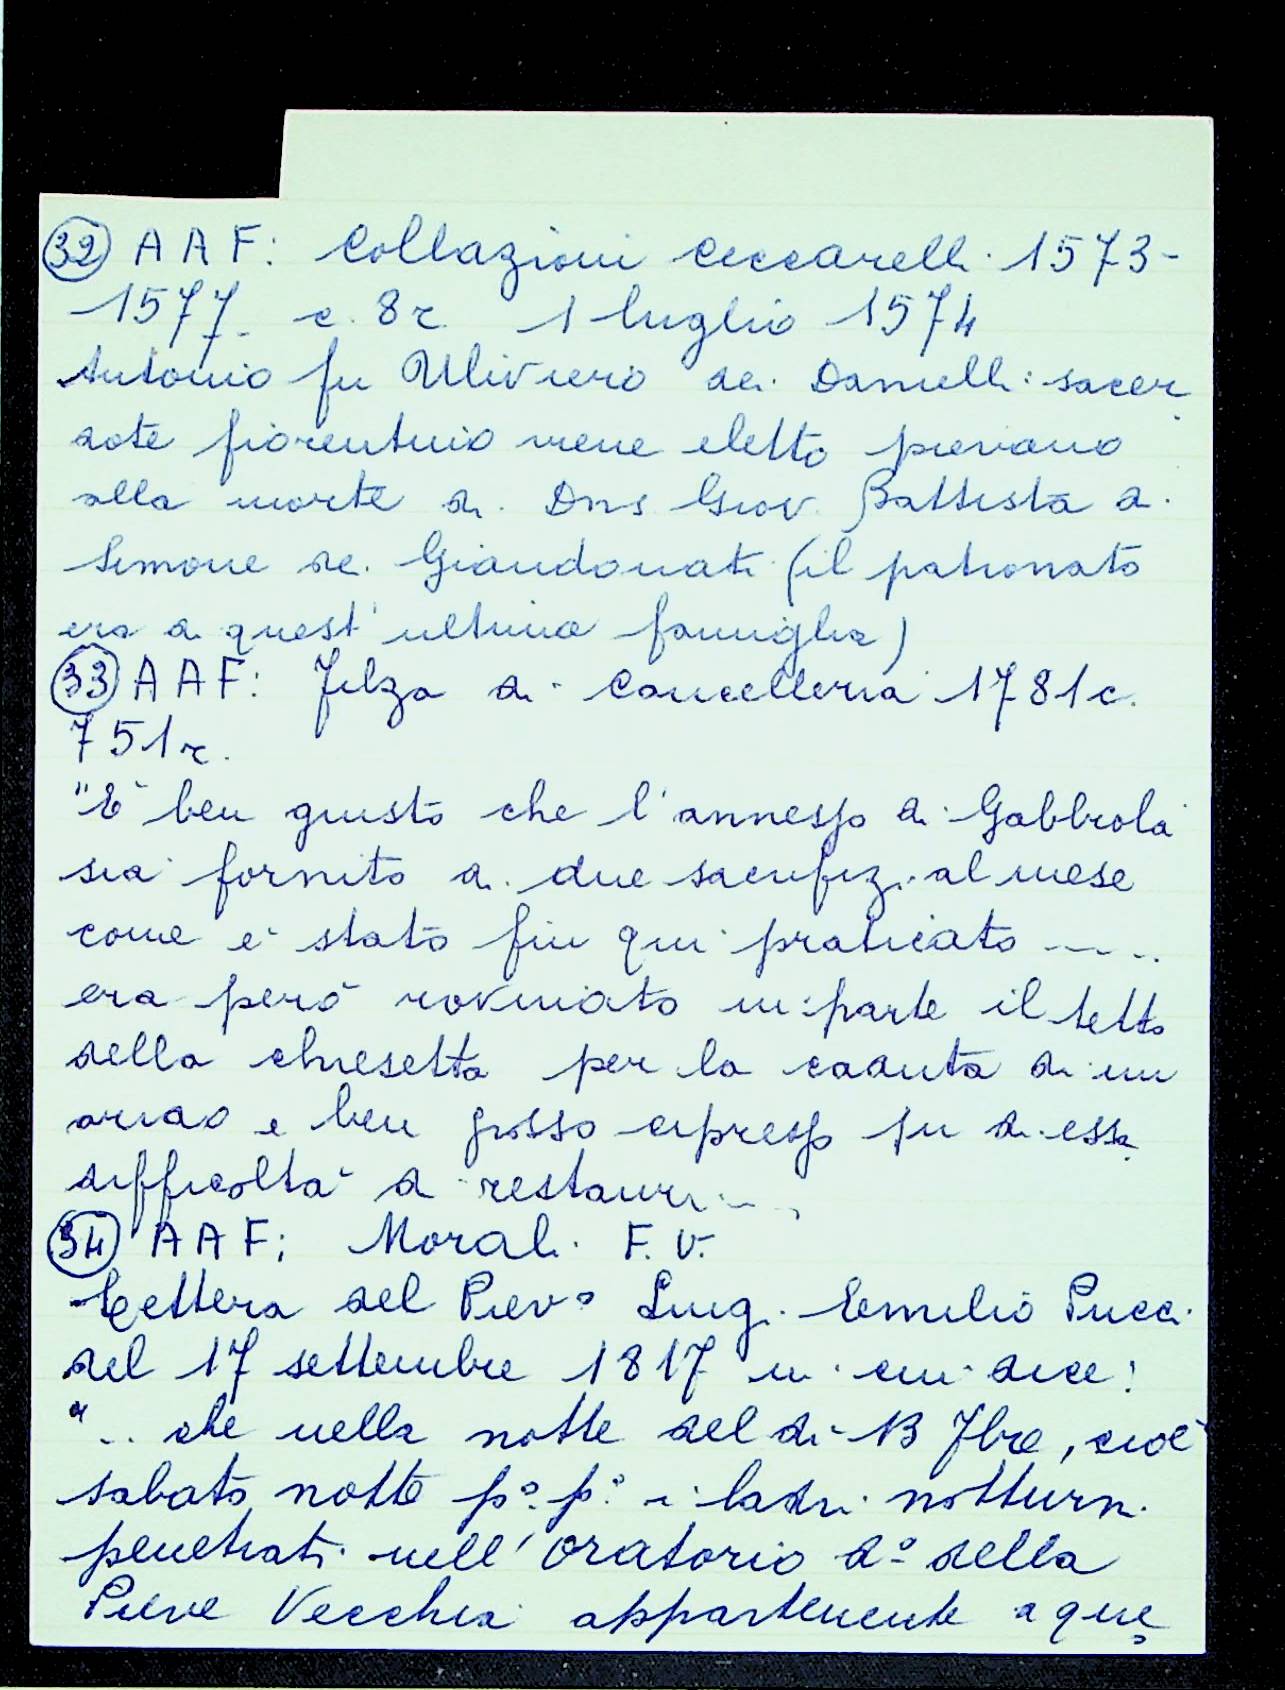 32 AAF: Collazioni Ceccarelli 1573-
1577 c. 8r. 1 luglio 1574
Antonio fu Uliviero dei Danielli: sacer
dote fiorentino viene eletto pievano
alla morte di Dns Giov. Battista di
Simone de Giandonati (il patronato
era di quest'ultima famiglia)
33 AAF: Filza di Cancelleria 1781 c.
751r.
"E' ben giusto che l'annesso di Gabbiola
sia fornito di due sacrifizi al mese
come è stato fin qui praticato .....
era però rovinato in parte il tetto
della chiesetta per la caduta di un
arido e ben grosso cipresso su di essa
difficoltà di restauri....
34 AAF: Morali F.V.
Lettera del Piev° Luigi Emilio Pucci
del 17 settembre 1817 in cui dice:
"... che nella notte del dì 13 7bre, cioè
sabato notte p° p° i ladri notturni
penetrati nell'oratorio d° della
Pieve Vecchia appartenente a que